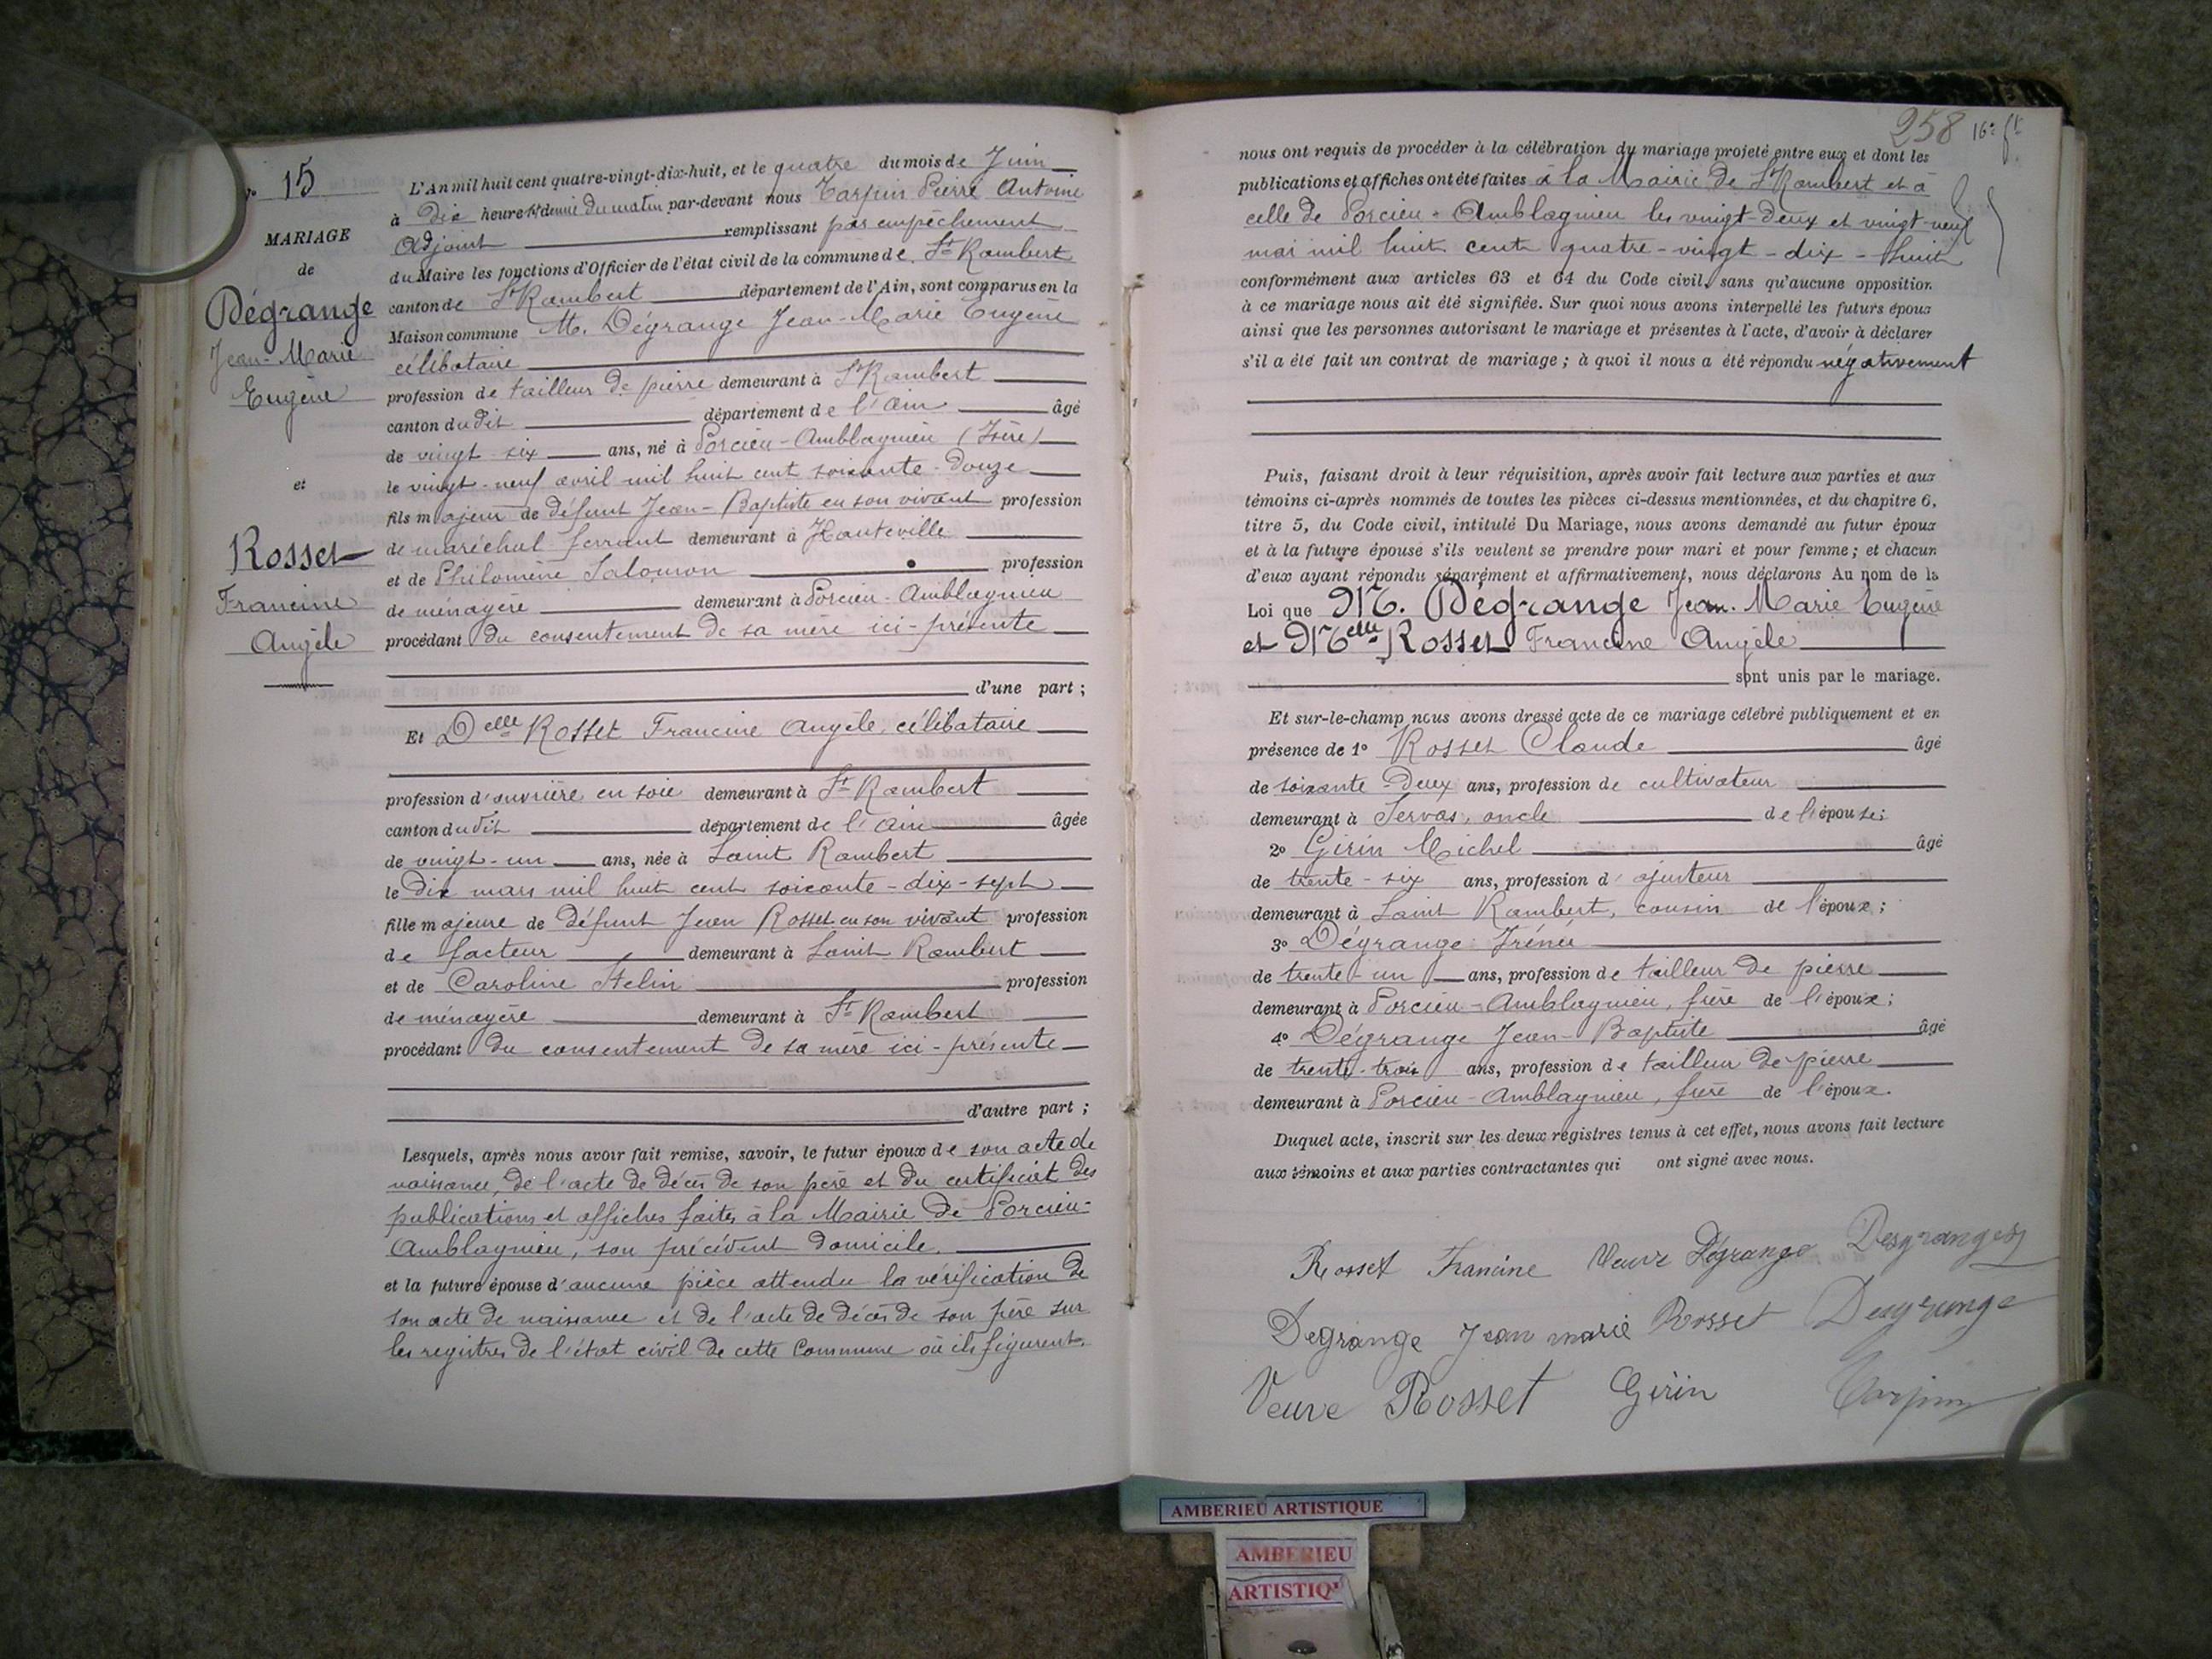 N° 15
MARIAGE
de
Dégrange
Jean-Marie
Eugène
et
Rosset
Francine
Angèle
L'An mil huit cent quatre-vingt-dix-huit, et le quatre du mois de Juin
à Dix heures et demie du matin par-devant nous Tarpin Pierre Antoine
Adjoint remplissant par empêchement
du Maire les fonctions d'Officier de l'état civil de la commune de St Rambert
canton de St Rambert département de l'Ain, sont comparus en la
Maison commune M. Dégrange Jean-Marie Eugène
célibataire
profession de tailleur de pierre demeurant à St Rambert
canton dudit département de l'Ain âgé
de vingt-six ans, né à Porcieu-Amblagnieu (Isère)
le vingt-neuf avril mil huit cent soixante-douze
fils majeur de défunt Jean-Baptiste en son vivant profession
de maréchal ferrant demeurant à Hauteville
et de Philomène Salomon profession
de ménagère demeurant à Porcieu-Amblagnieu
procédant du consentement de sa mère ici-présente
d'une part ;
Et Delle Rosset Francine Angèle, célibataire
profession d'ouvrière en soie demeurant à St Rambert
canton dudit département de l'Ain âgée
de vingt-un ans, née à Saint Rambert
le dix mars mil huit cent soixante-dix-sept
fille majeure de défunt Jean Rosset en son vivant profession
de facteur demeurant à Saint Rambert
et de Caroline profession
de ménagère demeurant à St Rambert
procédant du consentement de sa mère ici-présente
d'autre part ;
Lesquels, après nous avoir fait remise, savoir, le futur époux de son acte de
naissance, de l'acte de décès de son père et du certificat des
publications et affiches faites à la Mairie de Porcieu-
Amblagnieu, son précédent domicile.
et la future épouse d'aucune pièce attendu la vérification de
son acte de naissance et de l'acte de décès de son père sur
les registres de l'état civil de cette Commune où ils figurent.
258 16e ft
nous ont requis de procéder à la célébration du mariage projeté entre eux et dont les
publications et affiches ont été faites à la Mairie de St Rambert et à
celle de Porcieu-Amblagnieu les vingt-deux et vingt-neuf
mai mil huit cent quatre-vingt-dix-huit
conformément aux articles 63 et 64 du Code civil, sans qu'aucune opposition
à ce mariage nous ait été signifiée. Sur quoi nous avons interpellé les futurs époux
ainsi que les personnes autorisant le mariage et présentes à l'acte, d'avoir à déclarer
s'il a été fait un contrat de mariage ; à quoi il nous a été répondu négativement
Puis, faisant droit à leur réquisition, après avoir fait lecture aux parties et aux
témoins ci-après nommés de toutes les pièces ci-dessus mentionnées, et du chapitre 6,
titre 5, du Code civil, intitulé Du Mariage, nous avons demandé au futur époux
et à la future épouse s'ils veulent se prendre pour mari et pour femme ; et chacun
d'eux ayant répondu séparément et affirmativement, nous déclarons Au nom de la
Loi que M. Dégrange Jean-Marie Eugène
et Melle Rosset Francine Angèle
sont unis par le mariage.
Et sur-le-champ nous avons dressé acte de ce mariage célébré publiquement et en
présence de 1° Rosset Claude âgé
de soixante-deux ans, profession de cultivateur
demeurant à Servas, oncle de l'épouse;
2° Girin Michel âgé
de trente-six ans, profession d'ajusteur
demeurant à Saint Rambert, cousin de l'époux ;
3° Dégrange Irénée
de trente-un ans, profession de tailleur de pierre
demeurant à Porcieu-Amblagnieu, frère de l'époux ;
4° Dégrange Jean-Baptiste âgé
de trente-trois ans, profession de tailleur de pierre
demeurant à Porcieu-Amblagnieu, frère de l'époux.
Duquel acte, inscrit sur les deux registres tenus à cet effet, nous avons fait lecture
aux témoins et aux parties contractantes qui ont signé avec nous.
Rosset Francine Veuve Dégrange Desgranges
Degrange Jean marie Rosset Degrange
Veuve Rosset Girin Tarpin
AMBERIEU ARTISTIQUE
AMBERIEU
ARTISTIQ